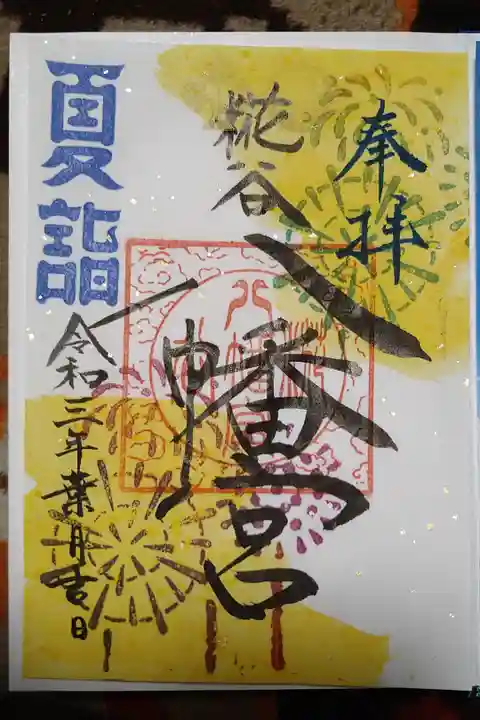 奉拝
糀谷
八幡宮
夏詣
令和三年葉月吉日